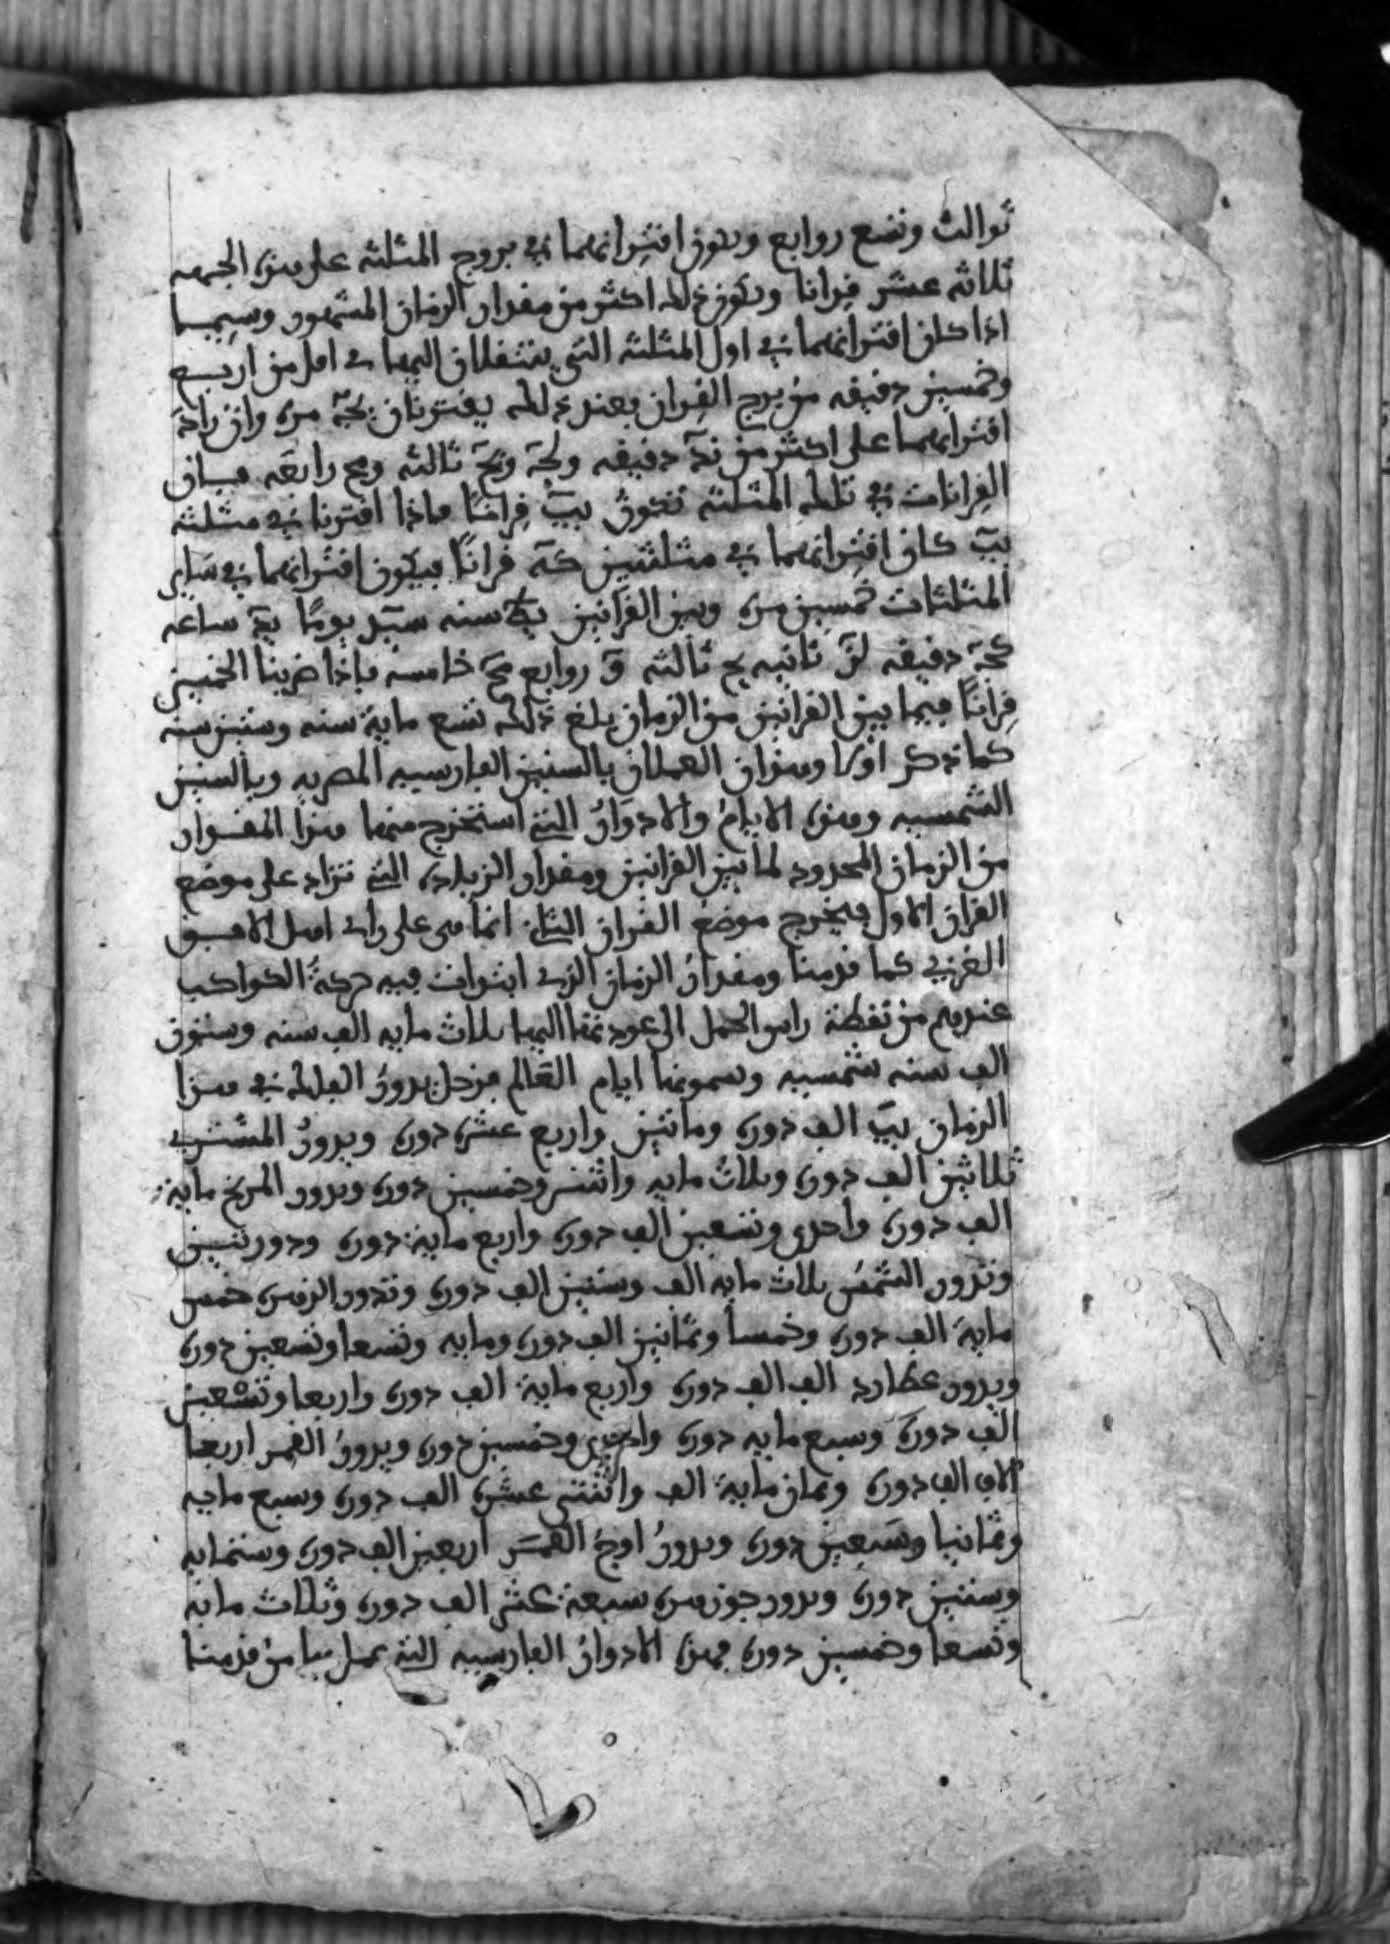 ثوالث وتسع روابع ويكون اقترانهما في بروج المثلثه على هذه الجهه
ثلاثه عشر قرانا ويكون ذلك اكثر من مقدار الزمان المشهور وسيما
اذا كان اقترانهما في اول المثلثه التي ينتقلان اليها في اقل من اربع
وخمسين دقيقه من برج القران فعند ذلك يقترنان يجة مره وان زاد
اقترانهما على اكثر من ند دقيقه ولجة ويج ثالثه ومح رابعه فان
القرانات في تلك المثلثه تكون يب قرانا فاذا اقترنا في مثلثه
يب كان اقترانهما في مثلثتين كه قرانا فيكون اقترانهما في ساير
المثلثات خمسين مره وبين القرانين يط سنه سيد يوما يد ساعه
كجة دقيقه لز ثانيه يح ثالثه و روابع مح خامسه فاذا ضربنا الخمسين
قرانا فيما بين القرانين من الزمان بلغ ذلك تسع ماية سنه وستين سنه
كما ذكر اولا وهذان العملان بالسنين الفارسيه المصريه وبالسنين
الشمسيه وهذه الايام والادوار التي استخرج منها هذا المقدار
من الزمان المحدود لما بين القرانين ومقدار الزياده التي تزاد على موضع
القران الاول فيخرج موضع القران الثاني انما هي على راي اهل الافق
الغربي كما قدمنا ومقدار الزمان الذي ابتدات فيه حركة الكواكب
عندهم من نقطة راس الحمل الى عودتها اليها ثلاث مايه الف سنه وستون
الف سنه شمسيه وسمونها ايام العالم فزحل يدور الفلك في هذا
الزمان يب الف دوره ومائتين واربع عشره دوره ويدور المشتري
ثلاثين الف دوره وثلاث مايه واثنتين وخمسين دوره ويدور المريخ مايه
الف دوره واحدى وتسعين الف دوره واربع مايه دوره ودورتين
وتدور الشمس ثلاث مايه الف وستين الف دوره وتدور الزهره خمس
ماية الف دوره وخمسا وثمانين الف دوره ومايه وتسعا وتسعين دوره
ويدور عطارد الف الف دوره واربع ماية الف دوره واربعا وتسعين
الف دوره وسبع مايه دوره واحدى وخمسين دوره ويدور القمر اربعة
الاف الف دوره وثمان ماية الف واثنتي عشره الف دوره وسبع مايه
وثمانيا وسبعين دوره ويدور اوج القمر اربعين الف دوره وستمايه
وستين دوره ويدور جوزهره سبعة عشر الف دوره وثلاث ماية
وتسعا وخمسين دوره فهذه الادوار الفارسيه التي عمل بها من قدمنا